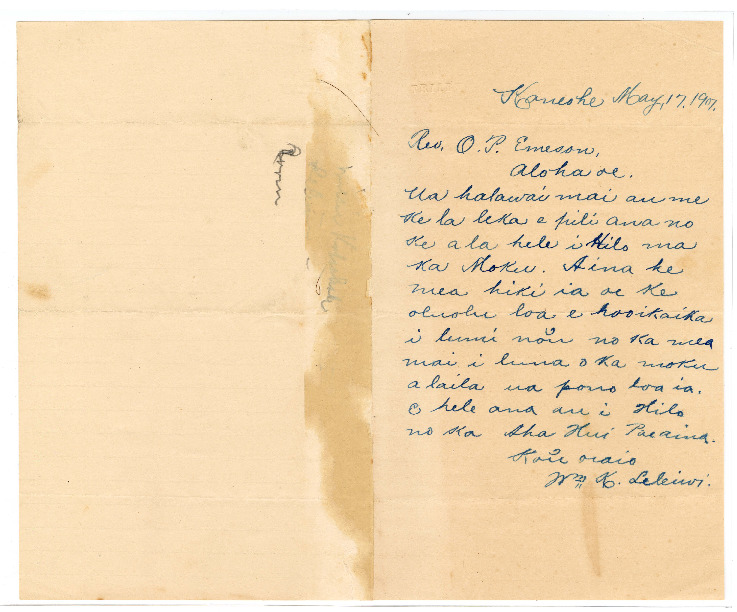 Kaneohe May, 17. 1901.
Rev. O. P. Emeson,
Aloha oe.
Ua halawai mai au me
ke la leka e pili ana no
ke ala hele i Hilo ma
ka Moku. Aina he
mea hiki ia oe ke
oluolu loa e hooikaika
i lumi no'u no ka mea
mai i luna o ka moku
alaila ua pono loa ia.
E hele ana au i Hilo
no ka Aha Hui Paeaina.
Kou oiaio
Wm K. Leleiwi.